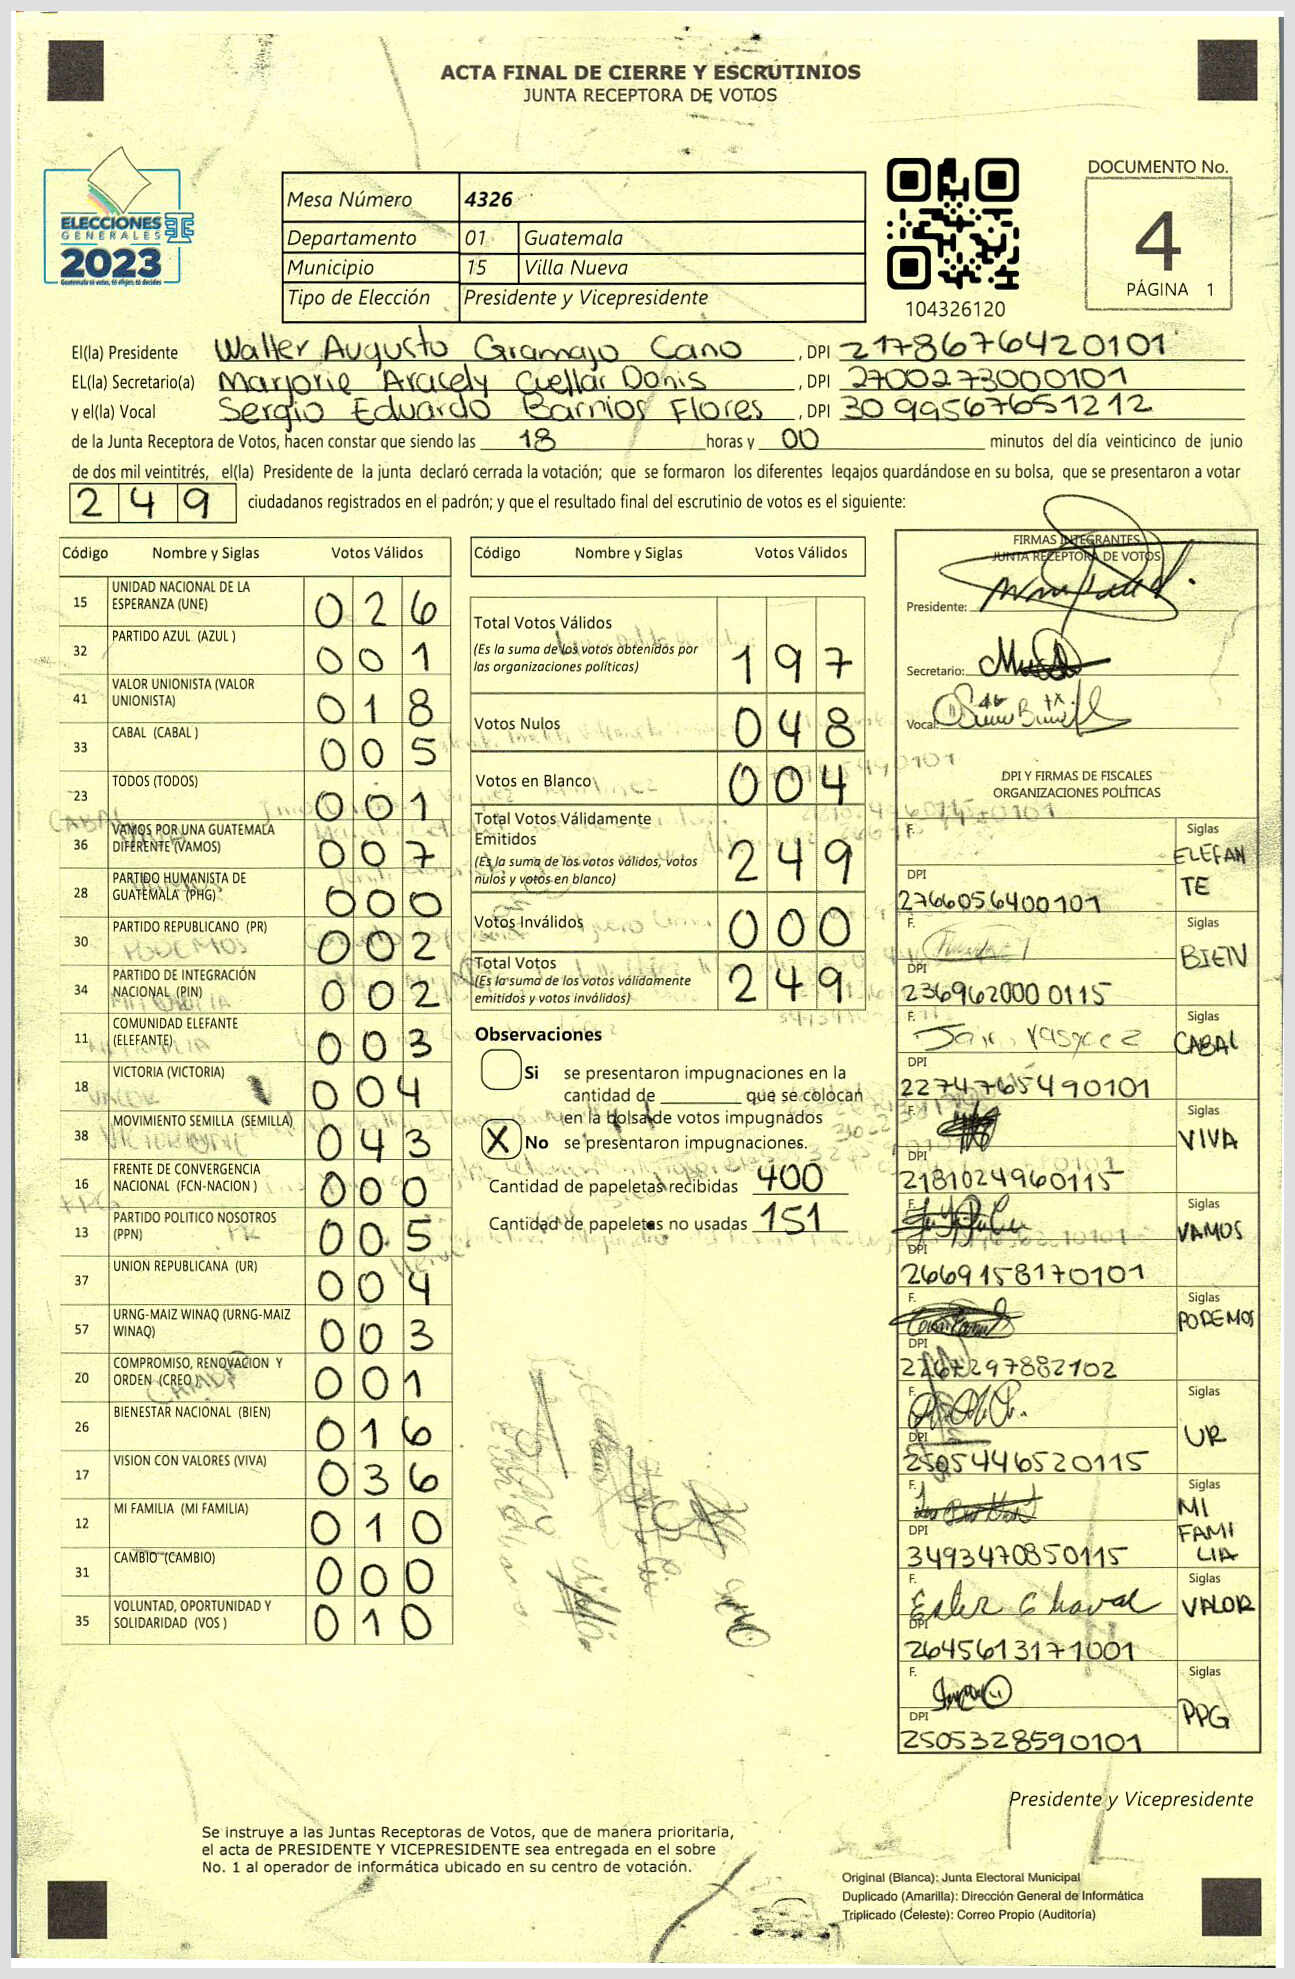 ACTA FINAL DE CIERRE Y ESCRUTINIOS
JUNTA RECEPTORA DE VOTOS
ELECCIONES
GENERALES
2023
Guatemala tú votas, tú eliges, tú decides
Mesa Número 4326
Departamento 01 Guatemala
Municipio 15 Villa Nueva
Tipo de Elección Presidente y Vicepresidente
104326120
DOCUMENTO No.
4
PÁGINA 1
El(la) Presidente Walter Augusto Gramajo Cano, DPI 2178676420101
EL(la) Secretario(a) Marjorie Aracely Cuellar Donis, DPI 2700273000101
y el(la) Vocal Sergio Eduardo Barrios Flores, DPI 3099567651212
de la Junta Receptora de Votos, hacen constar que siendo las 18 horas y 00 minutos del día veinticinco de junio
de dos mil veintitrés, el(la) Presidente de la junta declaró cerrada la votación; que se formaron los diferentes legajos guardándose en su bolsa, que se presentaron a votar
249 ciudadanos registrados en el padrón; y que el resultado final del escrutinio de votos es el siguiente:
Código Nombre y Siglas Votos Válidos
15 UNIDAD NACIONAL DE LA ESPERANZA (UNE) 026
32 PARTIDO AZUL (AZUL ) 001
41 VALOR UNIONISTA (VALOR UNIONISTA) 018
33 CABAL (CABAL ) 005
23 TODOS (TODOS) 001
36 VAMOS POR UNA GUATEMALA DIFERENTE (VAMOS) 007
28 PARTIDO HUMANISTA DE GUATEMALA (PHG) 000
30 PARTIDO REPUBLICANO (PR) 002
34 PARTIDO DE INTEGRACIÓN NACIONAL (PIN) 002
11 COMUNIDAD ELEFANTE (ELEFANTE) 003
18 VICTORIA (VICTORIA) 004
38 MOVIMIENTO SEMILLA (SEMILLA) 043
16 FRENTE DE CONVERGENCIA NACIONAL (FCN-NACION ) 000
13 PARTIDO POLITICO NOSOTROS (PPN) 005
37 UNION REPUBLICANA (UR) 004
57 URNG-MAIZ WINAQ (URNG-MAIZ WINAQ) 003
20 COMPROMISO, RENOVACION Y ORDEN (CREO ) 001
26 BIENESTAR NACIONAL (BIEN) 016
17 VISION CON VALORES (VIVA) 036
12 MI FAMILIA (MI FAMILIA) 010
31 CAMBIO (CAMBIO) 000
35 VOLUNTAD, OPORTUNIDAD Y SOLIDARIDAD (VOS ) 010
Código Nombre y Siglas Votos Válidos
Total Votos Válidos
(Es la suma de los votos obtenidos por
las organizaciones políticas) 197
Votos Nulos 048
Votos en Blanco 004
Total Votos Válidamente
Emitidos
(Es la suma de los votos válidos, votos
nulos y votos en blanco) 249
Votos Inválidos 000
Total Votos
(Es la suma de los votos válidamente
emitidos y votos inválidos) 249
Observaciones
Si se presentaron impugnaciones en la
cantidad de ________ que se colocan
en la bolsa de votos impugnados
X No se presentaron impugnaciones.
Cantidad de papeletas recibidas 400
Cantidad de papeletas no usadas 151
FIRMAS INTEGRANTES
JUNTA RECEPTORA DE VOTOS
Presidente:
Secretario:
Vocal:
DPI Y FIRMAS DE FISCALES
ORGANIZACIONES POLÍTICAS
F. Siglas ELEFANTE
DPI 2766056400101
F. Siglas BIEN
DPI 2369620000115
F. Siglas CABAL
DPI 2274765490101
F. Siglas VIVA
DPI 2181024960115
F. Siglas VAMOS
DPI 2669158170101
F. Siglas PODEMOS
DPI
F. Siglas UR
DPI 2505446520115
F. Siglas MI FAMILIA
DPI 3493470850115
F. Siglas VALOR
DPI 2645613171001
F. Siglas PPG
DPI 2505328590101
Presidente y Vicepresidente
Se instruye a las Juntas Receptoras de Votos, que de manera prioritaria,
el acta de PRESIDENTE Y VICEPRESIDENTE sea entregada en el sobre
No. 1 al operador de informática ubicado en su centro de votación.
Original (Blanca): Junta Electoral Municipal
Duplicado (Amarilla): Dirección General de Informática
Triplicado (Celeste): Correo Propio (Auditoría)